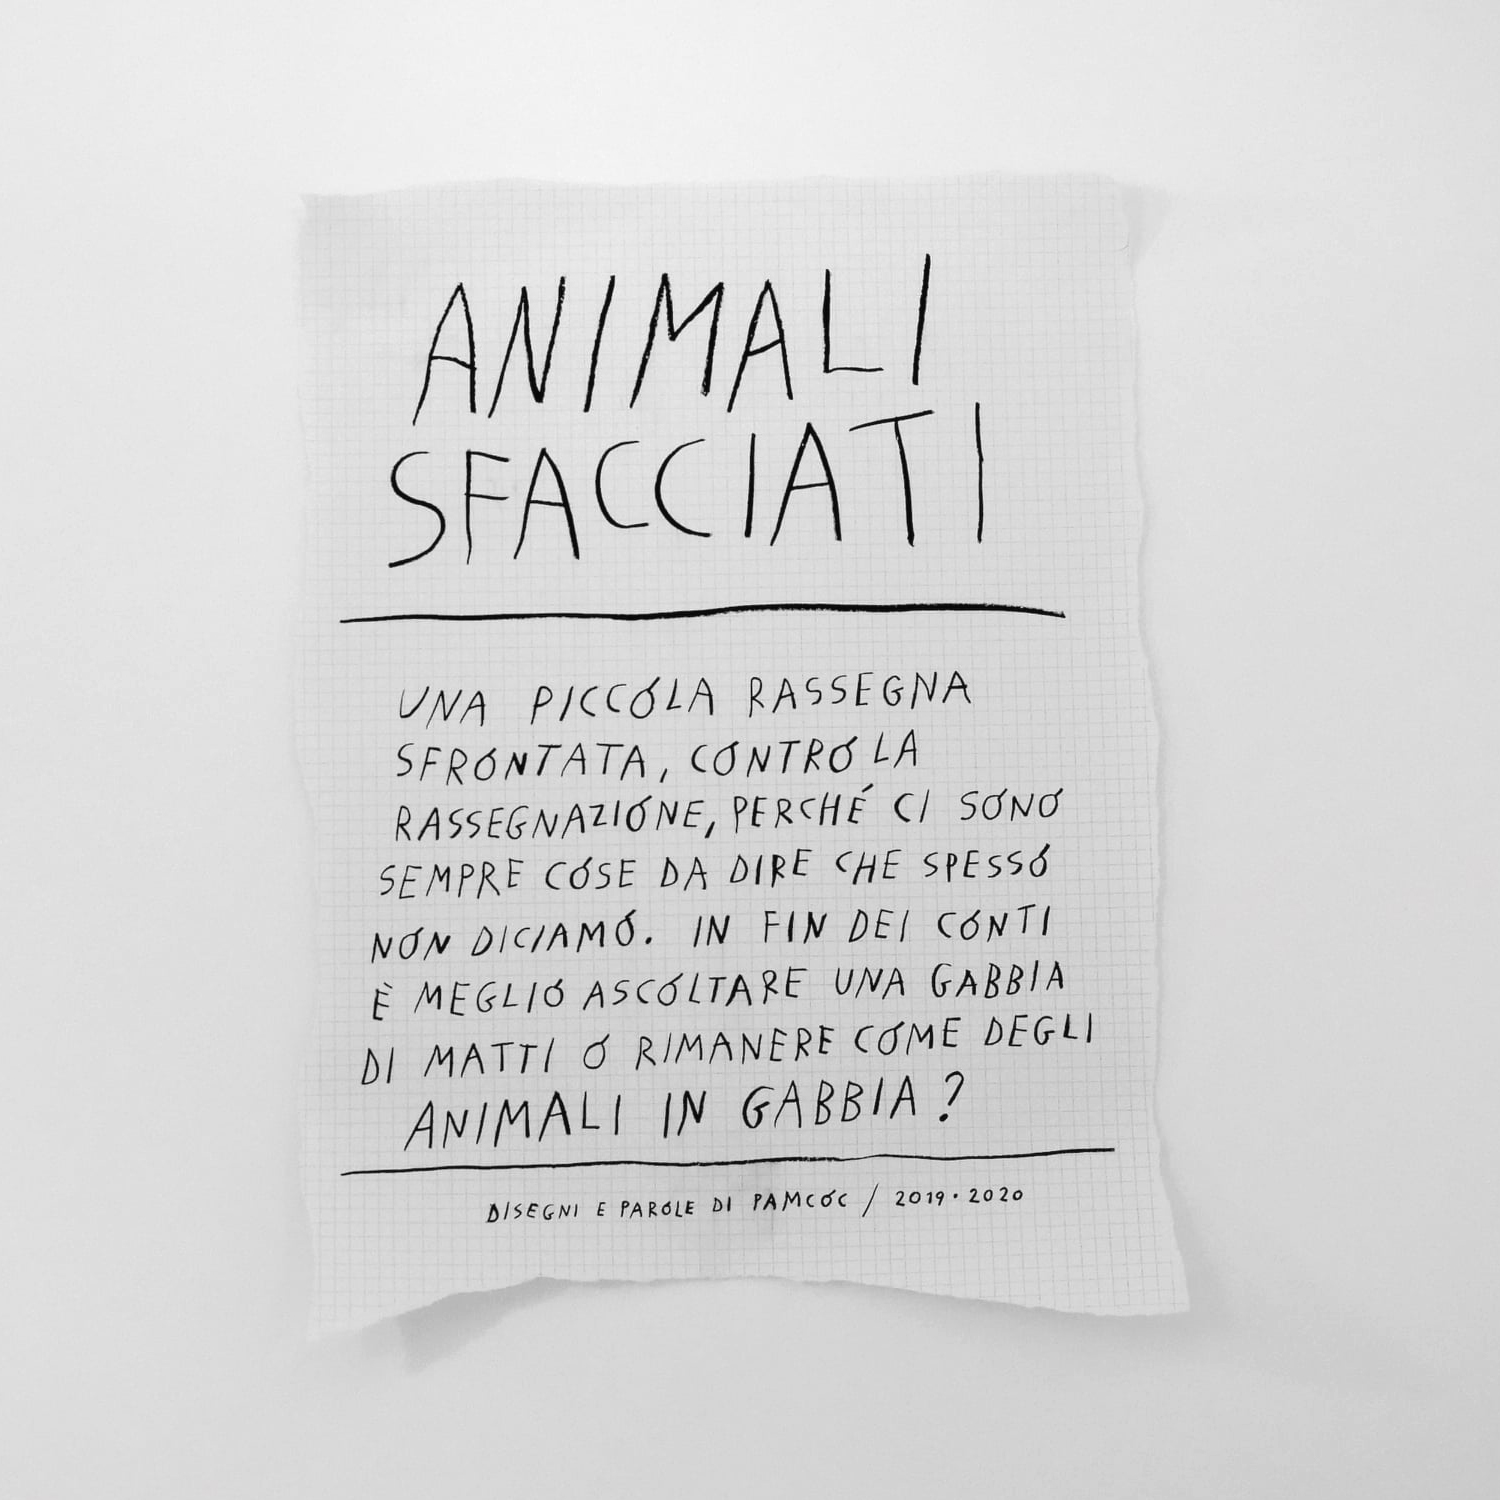 ANIMALI
SFACCIATI
UNA PICCOLA RASSEGNA
SFRONTATA, CONTRO LA
RASSEGNAZIONE, PERCHÉ CI SONO
SEMPRE COSE DA DIRE CHE SPESSO
NON DICIAMO. IN FIN DEI CONTI
È MEGLIO ASCOLTARE UNA GABBIA
DI MATTI O RIMANERE COME DEGLI
ANIMALI IN GABBIA?
DISEGNI E PAROLE DI PAMCOC / 2019·2020